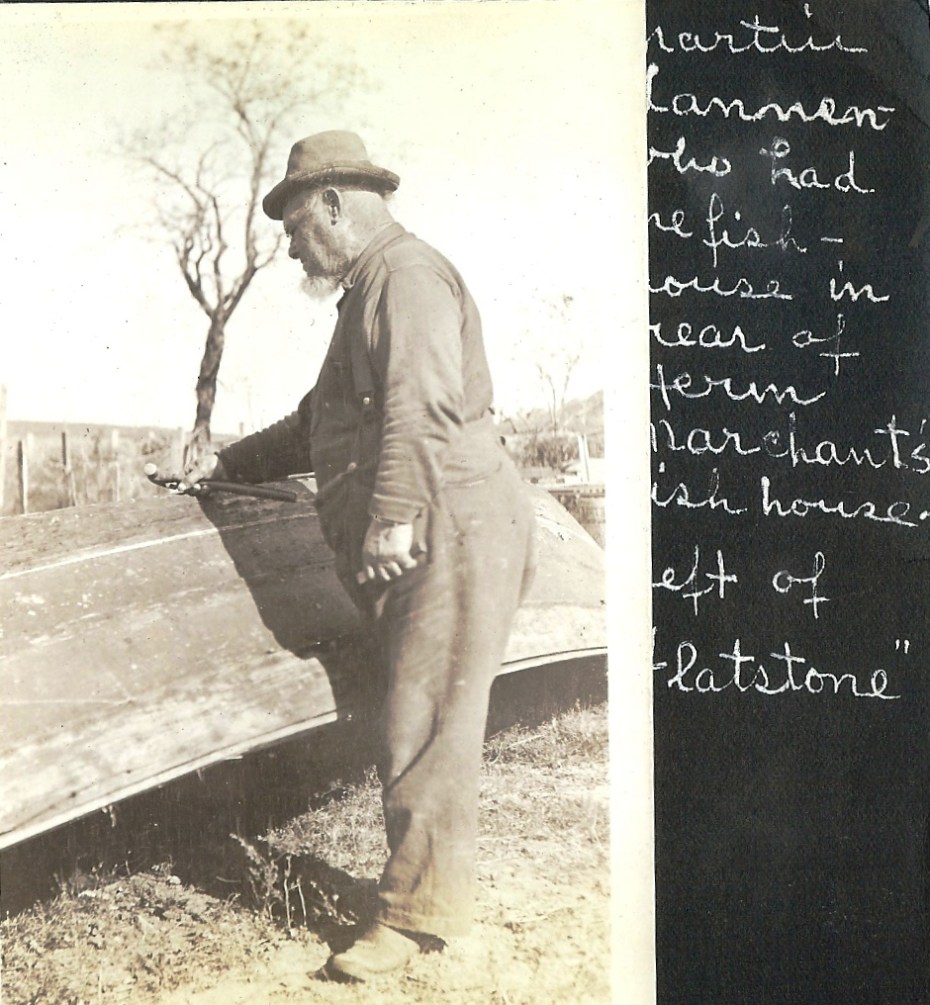 martin
lannen
who had
he fish-
ouse in
rear of
Marchant's
ish house.
eft of
Flatstone"